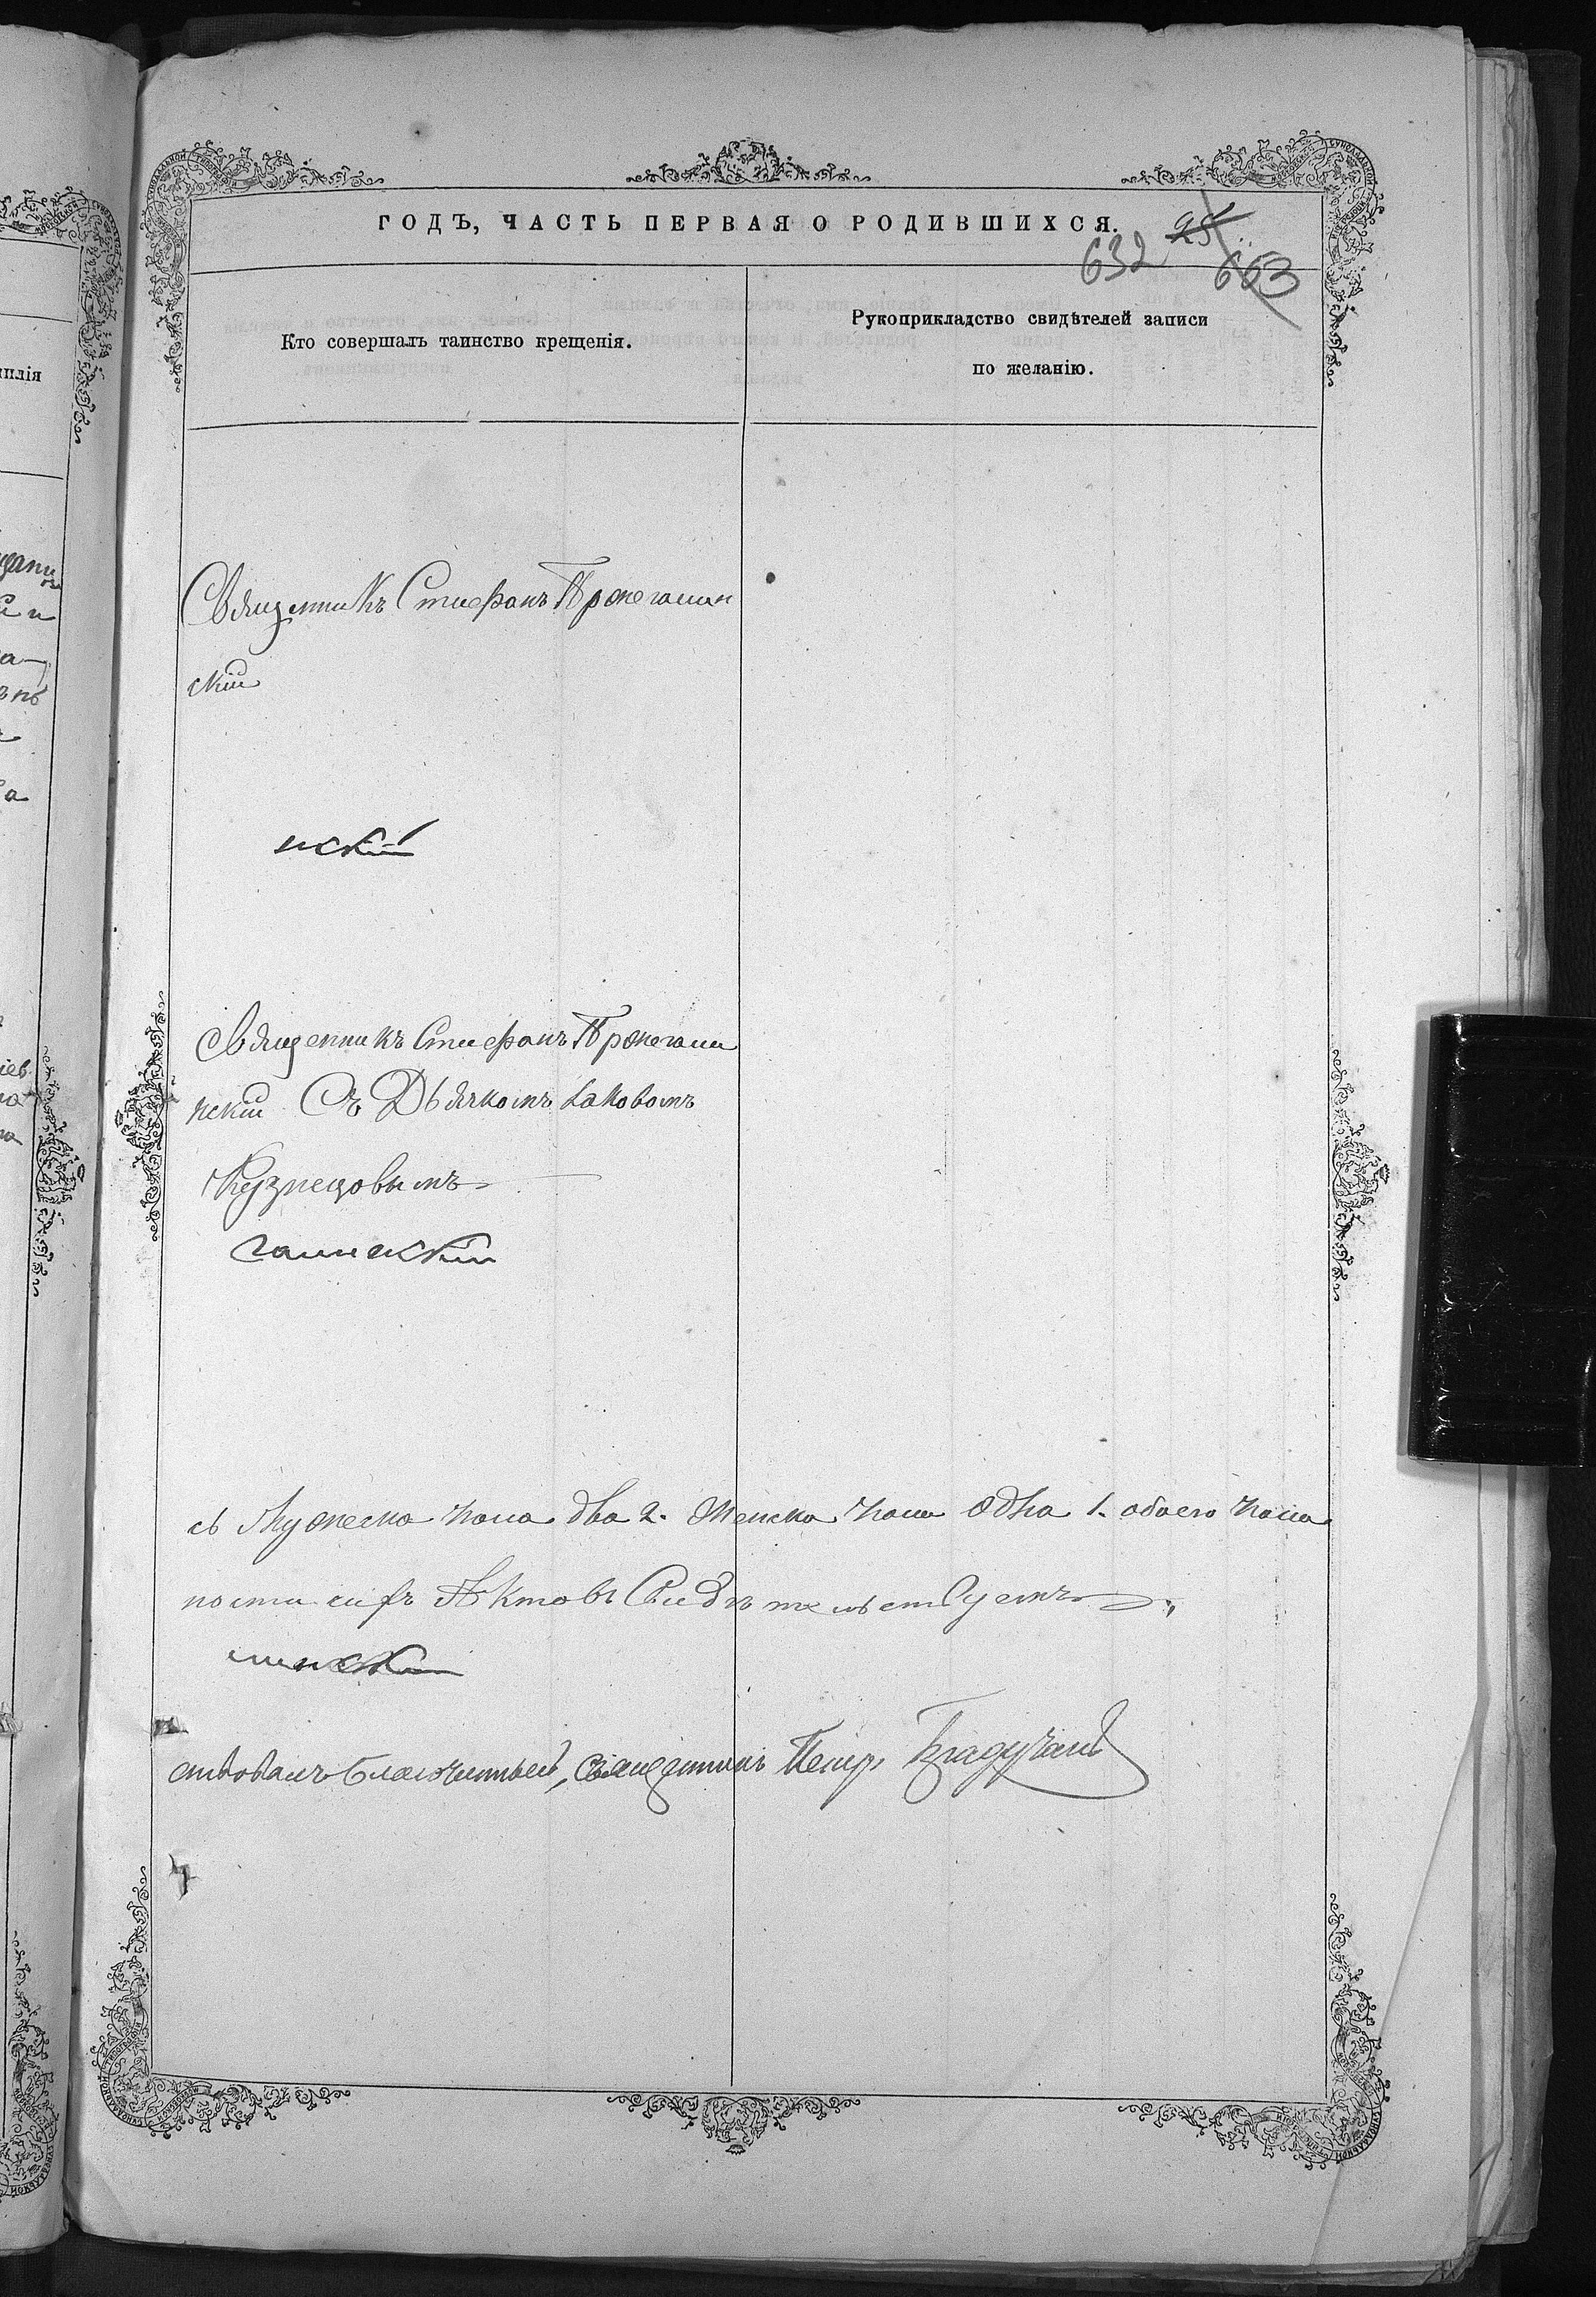 ГОДЪ, ЧАСТЬ ПЕРВАЯ О РОДИВШИХСЯ.
25
632 663
Кто совершалъ таинство крещенія.
Рукоприкладство свидѣтелей записи
по желанію.
Священникъ Стефанъ
скій
нскій
Священникъ Стефанъ
нскій Съ Дьячкомъ Іаковомъ
Кузнецовымъ
съ Мужеска пола два 2. Женска пола одна 1. обоего пола
ности сихъ Актовъ Свидѣтельствуемъ
ствовалъ Благочинный, Священникъ Петръ